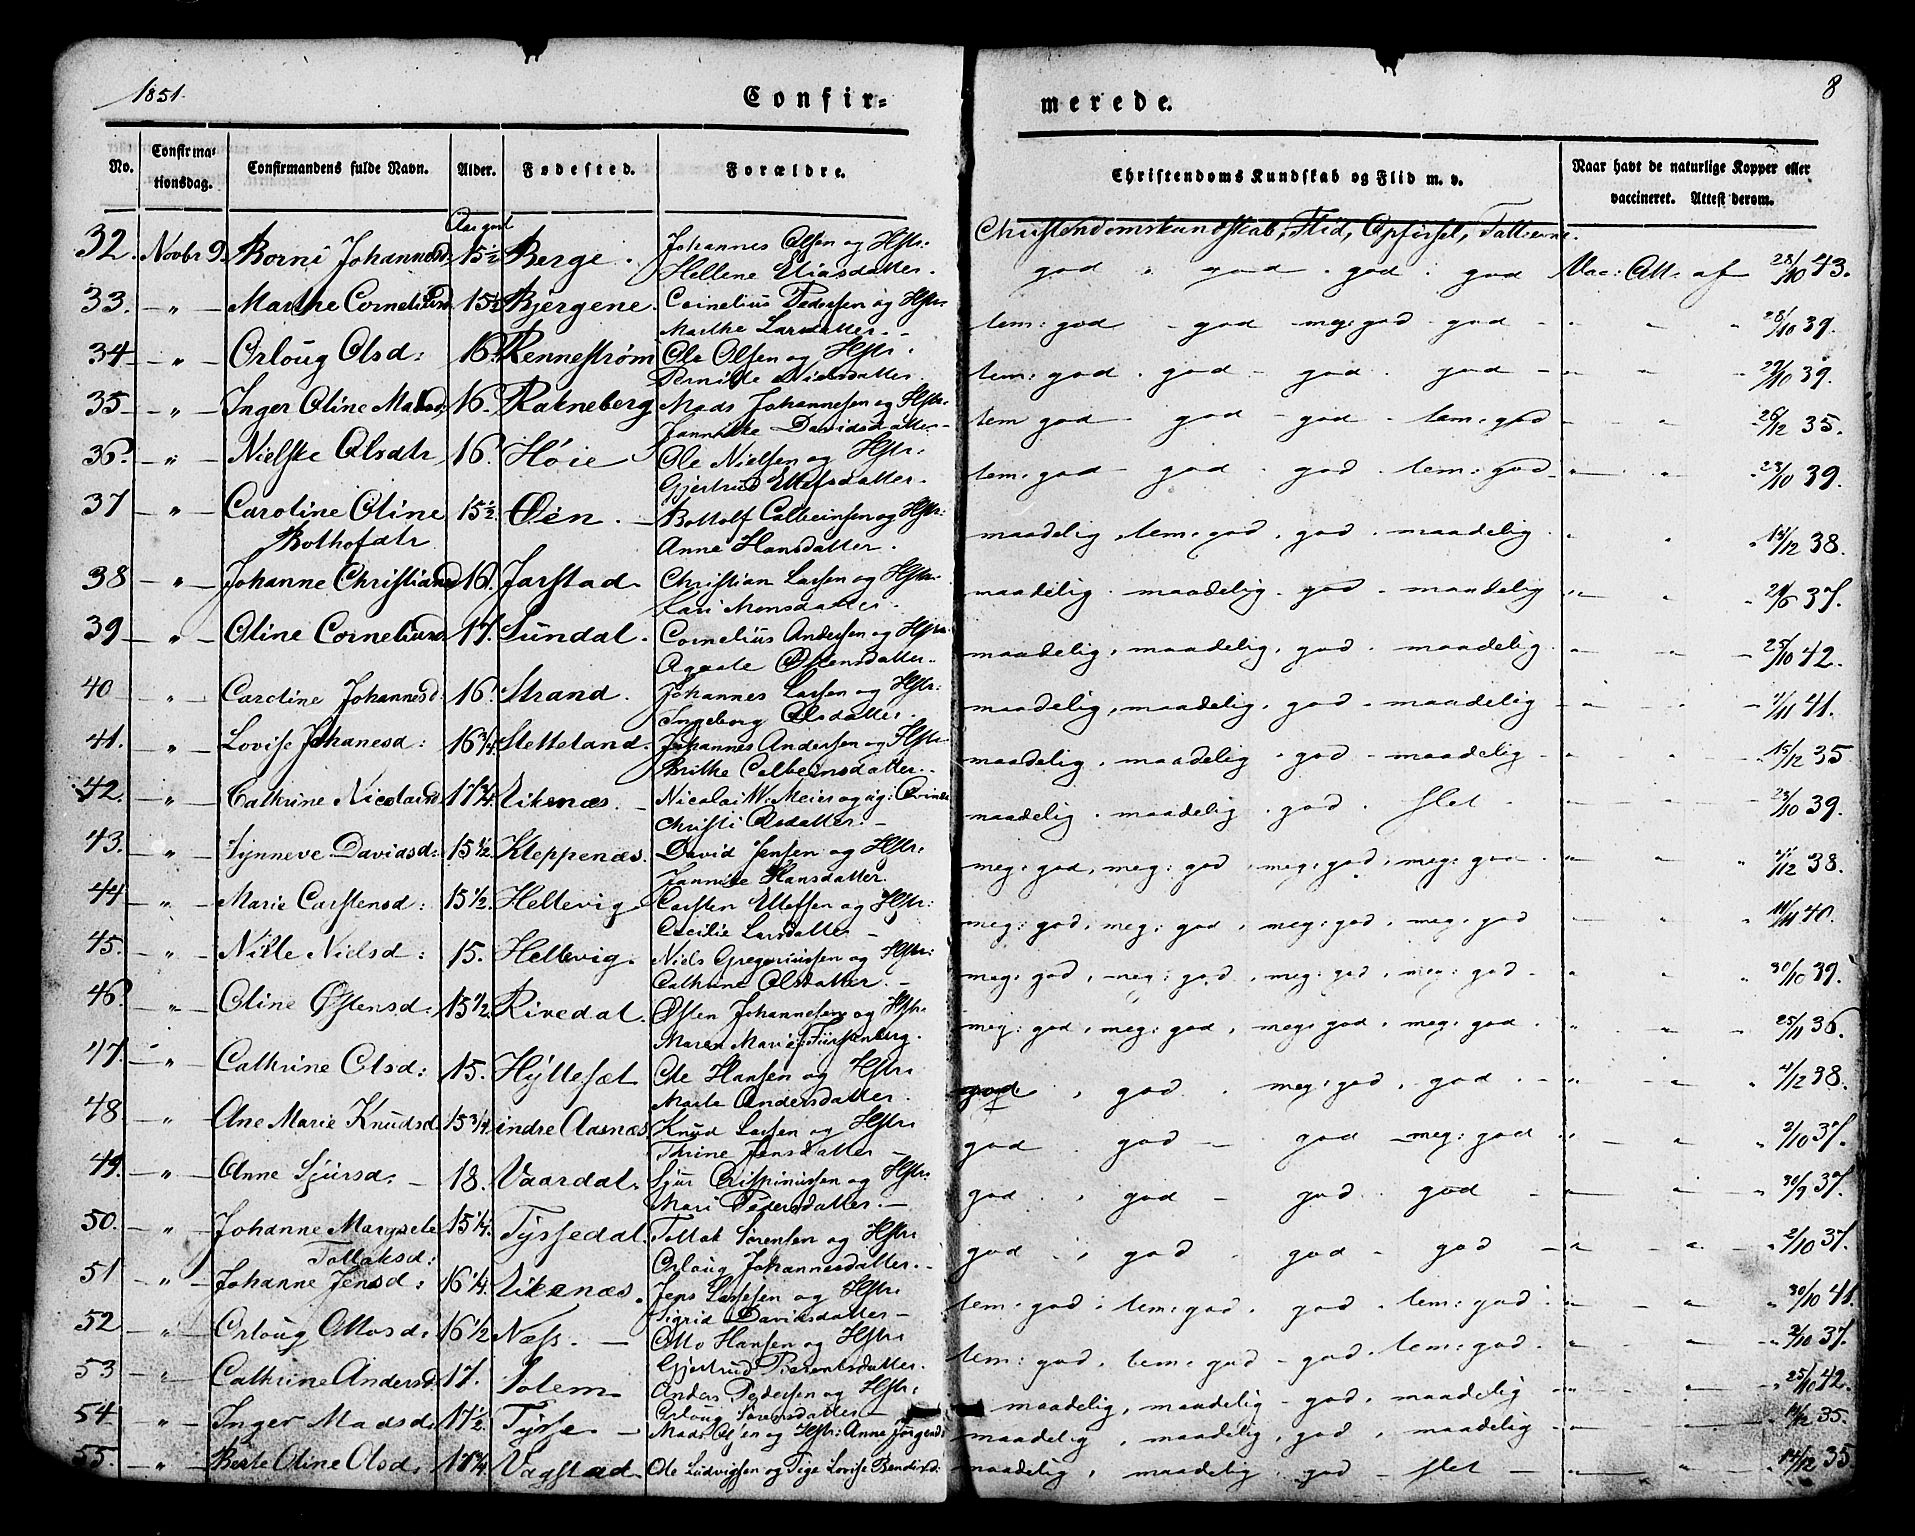 1851.
Confir=
merede.
8
No.
Confirma-
tionsdag.
Confirmandens fulde Navn.
Alder.
Fødested.
Forældre.
Christendoms Kundskab og Flid m. v.
Naar havt de naturlige Kopper eller
vaccineret. Attest derom.
Christendomskundskab, Flid, Opførsel,
32. Novbr 9. Borni Johannesd: 15½ Berge. Johannes Olsen og Hstr: god " god . god . god Vac: Att: af 28/10 43.
Hellene Eliasdatter.
33. — " — Marthe Corneliusd: 15½ Bjergene. Cornelius Pedersen og Hstr: tem: god - god meg: god - god - " " " 28/10 39.
Marthe Larsdatter. -
34 — " — Orloug Olsd: 16. Rennestrøm Ole Olsen og Hstr. tem: god . god - god . god - " " 29/10 39.
Pernille Nielsdatter.
35 — " — Inger Oline Madsd: 16. Rakneberg Mads Johannesen og Hstr. tem god - god - god - tem: god - " " 26/12 35.
Jannikke Davidsdatter. -
36. — " — Nielske Olsdtr 16. Høie Ole Nielsen og Hstr. tem: god - god . god . tem: god - " " 23/10 39.
Gjertrud Ellefsdatter.
37 — " — Caroline Oline 15½ Øen. — Bottolf Colbeinsen og Hstr: maadelig, tem: god, god . maadelig. " " " 13/12 38.
Bothofdtr Anne Hansdatter.
38 — " — Johanne Christiansd 16. Jarstad. Christian Larsen og Hstr. maadelig . maadelig . god - maadelig " " " 37.
Kari Monsdatter.
39 — " — Oline Corneliusd. 17. Sundal. Cornelius Andersen og Hstr. maadelig, maadelig, god . maadelig. " " 25/10 42.
Agaate Østensdatter.
40 — " — Caroline Johannesd: 16. Strand. Johannes Larsen og Hstr: maadelig, maadelig, god . maadelig - " " 41.
Ingeborg Olsdatter.
41. — " — Lovise Johanesd: 16¾ Stetteland. Johannes Andersen og Hstr. maadelig, maadelig . god - maadelig - " " 15/12 35
Brithe Colbeinsdatter. -
42. — " — Cathrine Nicolaisd. 17¾ Eikenæs. — Nicolai W: Meier og maadelig . maadelig . god . slet - " 23/10 39.
Christi Olsdatter. -
43. — " — Synneve Davidsd: 15½ Kleppenæs. David Jensen og Hstr: meg: god, meg: god, meg: god, meg: god . " " " 12 38.
Jannike Hansdatter.
44 — " — Marie Carstensd: 15½. Hellevig. Carsten Ellefsen og Hstr: meg: god, meg: god, meg: god, meg: god " " 11/11 40.
Cecilie Larsdatter -
45. — " — Nille Nielsd: 15. Hellevig. Niels Gregoriussen og Hstr: meg: god, meg: god, meg: god, meg: god - " " 30/10 39.
Cathrine Olsdatter. -
46. — " — Oline Østensd: 15½. Rivedal. Østen Johannesen og Hstr. meg: god, meg: god, meg: god, meg: god. " " 25/11 36.
Maren Marie Fürstenberg.
47. — " — Cathrine Olsd: 15. Hyllesæt Ole Hansen og Hstr: god, god . meg: god, god . - " " " 12 38.
Marte Andersdatter.
48 — " — Ane Marie Knudsd. 15¾ indre Aasnæs. Knud Larsen og Hstr: god . god — . god - meg: god " " 2/10 37.
Thrine Jensdatter —
49. — " — Anne Sjursd. — 18. Vaardal. Sjur Crispinussen og Hstr: god . , god - god . god - " " 30/9 37.
Mari Pedersdatter. —
50. — " — Johanne Margrete 15¼. Tyssedal. Tollak Sørensen og Hstr: god . , god . god - god - " " 2/10 37.
Tollaksd: Orloug Johannesdatter. -
51 — " — Johanne Jensd: 16¼. Eikenæs. Jens Larsen og Hstr: tem: god, tem: god . god . tem: god . " " 30/10 41.
Sigrid Davidsdatter —
52 — " — Orloug Ottosd: 16½ Næss. — Otto Hansen og Hstr: tem: god, tem: god - god . tem: god. " " 2/10 37.
Gjertrud Berentsdatter.
53 — " — Cathrine Andersd. 17. Solem. Anders Pedersen og Hstr: maadelig, maadelig - god, maadelig - " " 25/10 42.
Orloug Sørensdatter —
54 — " — Inger Madsd. 17½. Tysse. — Mads Olsen og Hstr: Anne Jørgensd: maadelig, maadelig, god, maadelig - " " 14/12 35.
55. — " — Berte Oline Olsd. 17¾ Vagstad. Ole Ludvigsen og Pige Lovise Bendixd: maadelig, maadelig . god - slet - " " 14/12 35